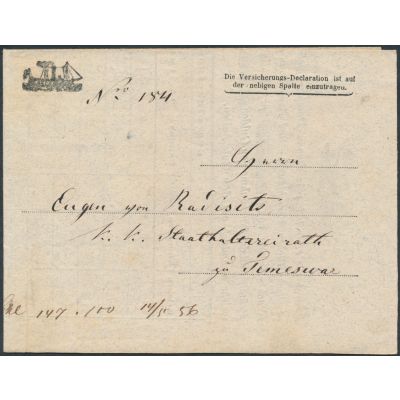 Nro 184
Die Versicherungs-Declaration ist auf
der nebigen Spalte einzutragen.
Herrn
Eugen von Radisits
k. k. Staathaltereirath
zu Temeswar
147 . 100 14/5 56